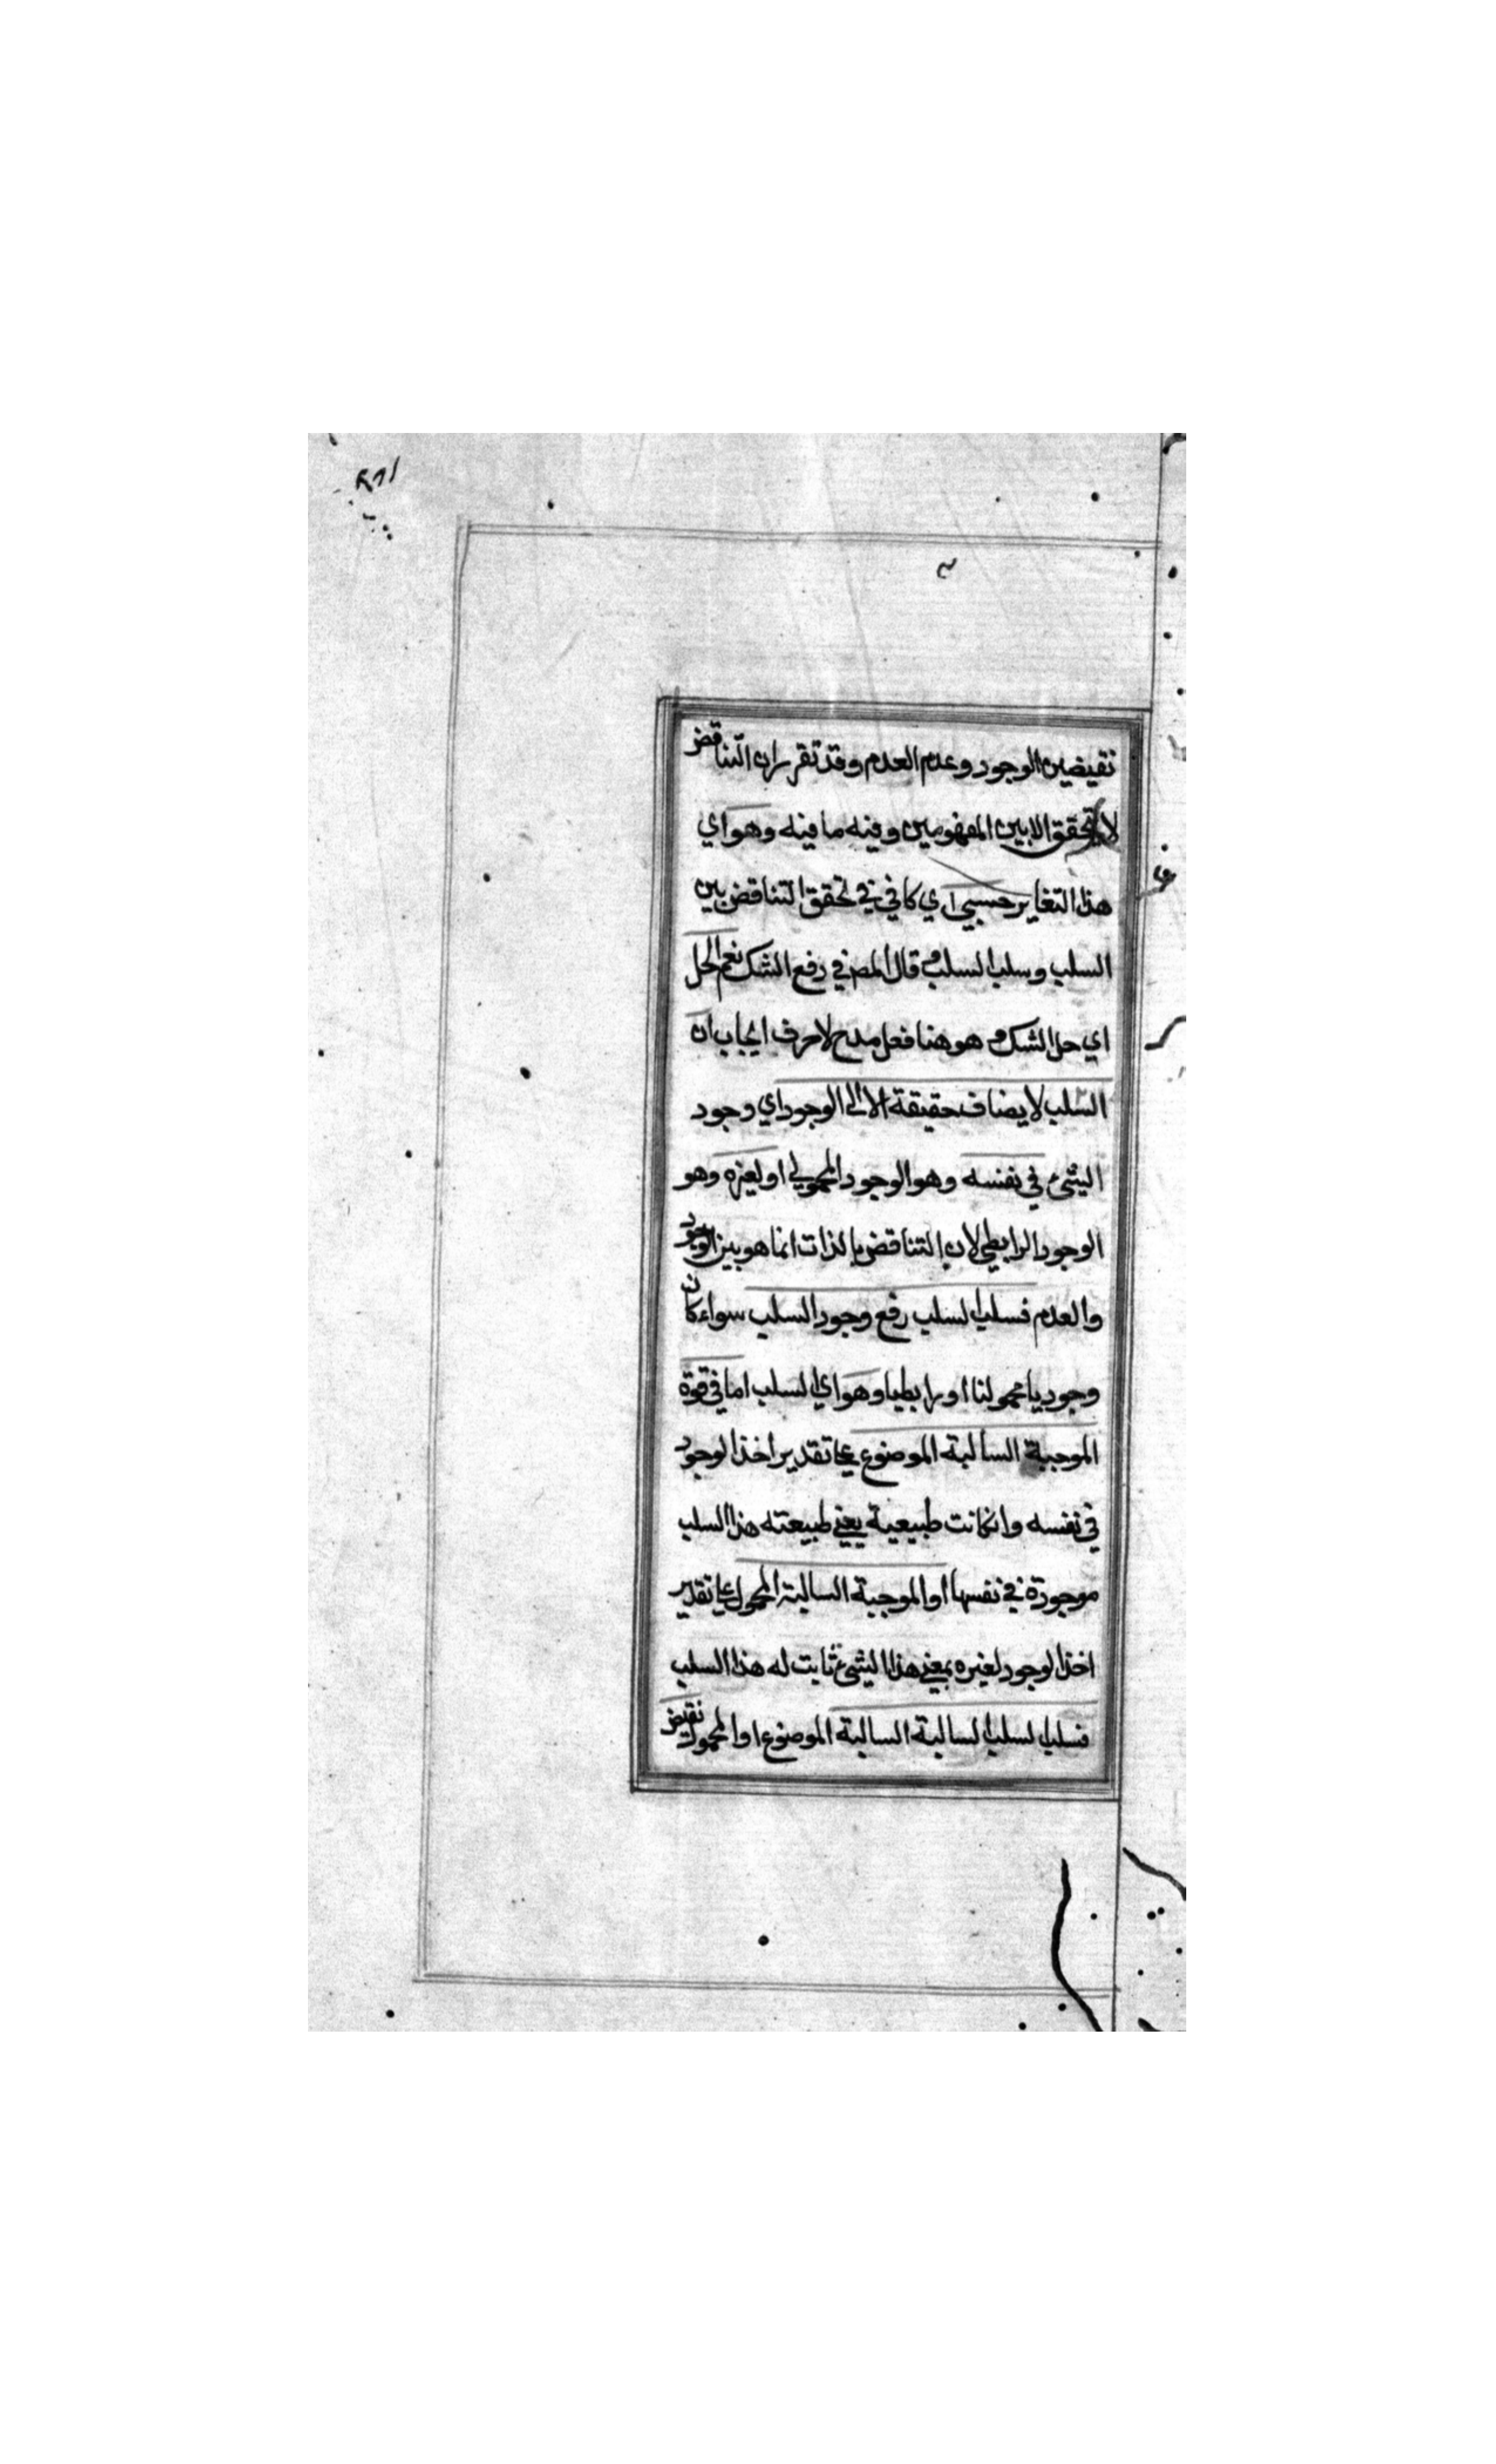 نقيضين الوجود وعدم العدم وقد تقرر ان التناقض
لا يتحقق الا بين المفهومين وفيه ما فيه وهو اي
هذا التغاير حسبي اي كافي في تحقق التناقض بين
السلب وسلب السلب قال المص في رفع الشك نعم الحل
اي حل الشك هو هنا فعل مدح لا حرف ايجاب ان
السلب لا يضاف حقيقة الا الى الوجود اي وجود
الشيء في نفسه وهو الوجود المحمولي او لغيره وهو
الوجود الرابطي لان التناقض بالذات انما هو بين الوجود
والعدم فسلب السلب رفع وجود السلب سواء كان
وجوديا محمولنا او رابطيا وهو اي السلب اما في قوة
الموجبة السالبة الموضوع على تقدير اخذ الوجود
في نفسه وانكانت طبيعية يعني طبيعته هذا السلب
موجودة في نفسها او الموجبة السالبة المحمول على تقدير
اخذ الوجود لغيره بمعني هذا الشيء ثابت له هذا السلب
فسلب السلب السالبة السالبة الموضوع او المحمول نقيض